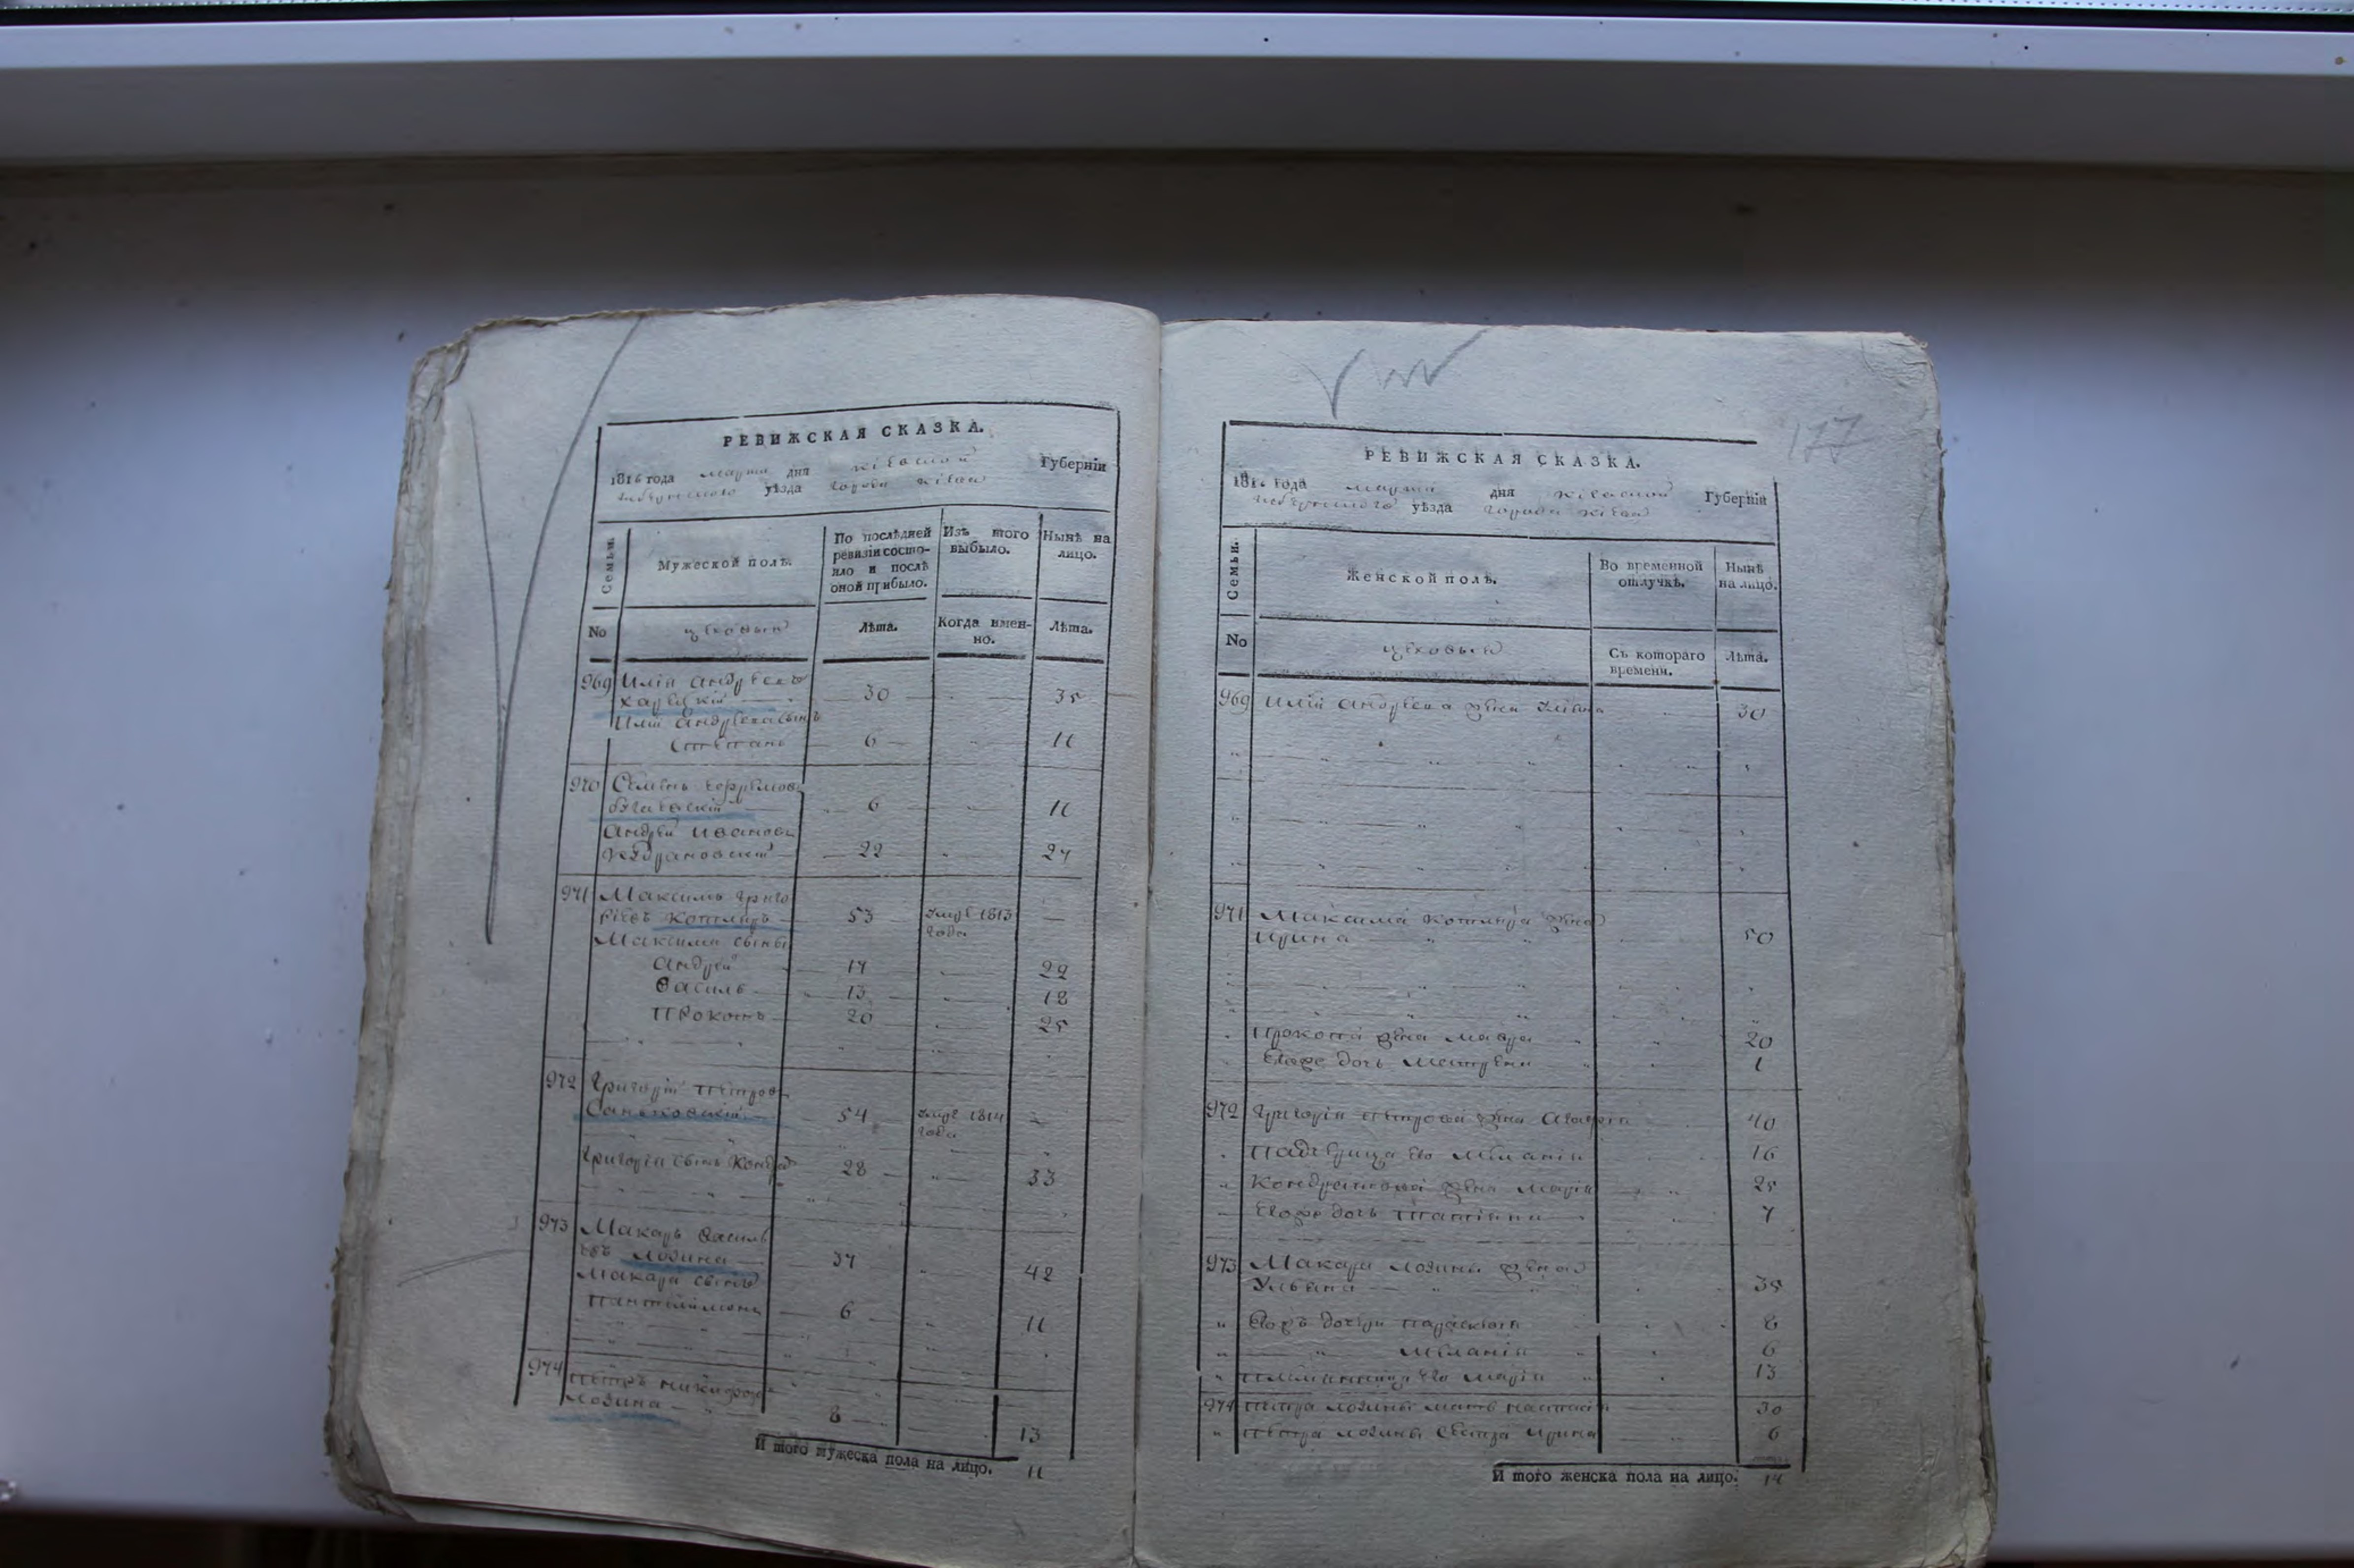 РЕВИЖСКАЯ СКАЗКА.
1816 года марта дня Кіевской Губерніи
уѣзда города Кіева
Семьи.
Мужеской полъ.
По послѣдней ревизіи состояло и послѣ оной прибыло.
Изъ того выбыло.
Нынѣ на лицо.
No
цеховыи
Лѣта.
Когда именно.
Лѣта.
969 Илія Андреевъ
30 35
Иліи Андреева сынъ
Степанъ 6 11
970 Семенъ Ефремов
6 11
Андрей Иванов
22 27
971 Максимъ Григо
ріевъ Котляръ 53 1813 года —
Максима сыны
Андрей 17 22
Василь 13 18
Прокопъ 20 25
972 Григорій Петровъ
54 1814 года
Григорія сынъ Кондрат 28 33
973 Макаръ Василь
евъ Лозина 37 42
Макара сынъ
Пантелимонъ 6 11
974 Петръ Никифоров
Лозина 8 13
И того мужеска пола на лицо. 11
177
РЕВИЖСКАЯ СКАЗКА.
1816 года марта дня Кіевской Губерніи
уѣзда города Кіева
Семьи.
Женской полъ.
Во временной отлучкѣ.
Нынѣ на лицо.
No
цеховыи
Съ котораго времени.
Лѣта.
969 Иліи Андреева жена 30
971 Максима Котляра жена
Ирина 50
Прокопа жена Мавра 20
Его же дочь 1
972 Григорія Петрова жена Агафія 40
Падчерица его Меланія 16
Кондратова жена Марія 25
Его же дочь Татіяна 7
973 Макара Лозины жена
Ульяна 35
дочери Параскева 8
Меланія 6
Племянница его Марія 13
974 Петра Лозины мать 30
Петра Лозины сестра Ирина 6
И того женска пола на лицо. 14